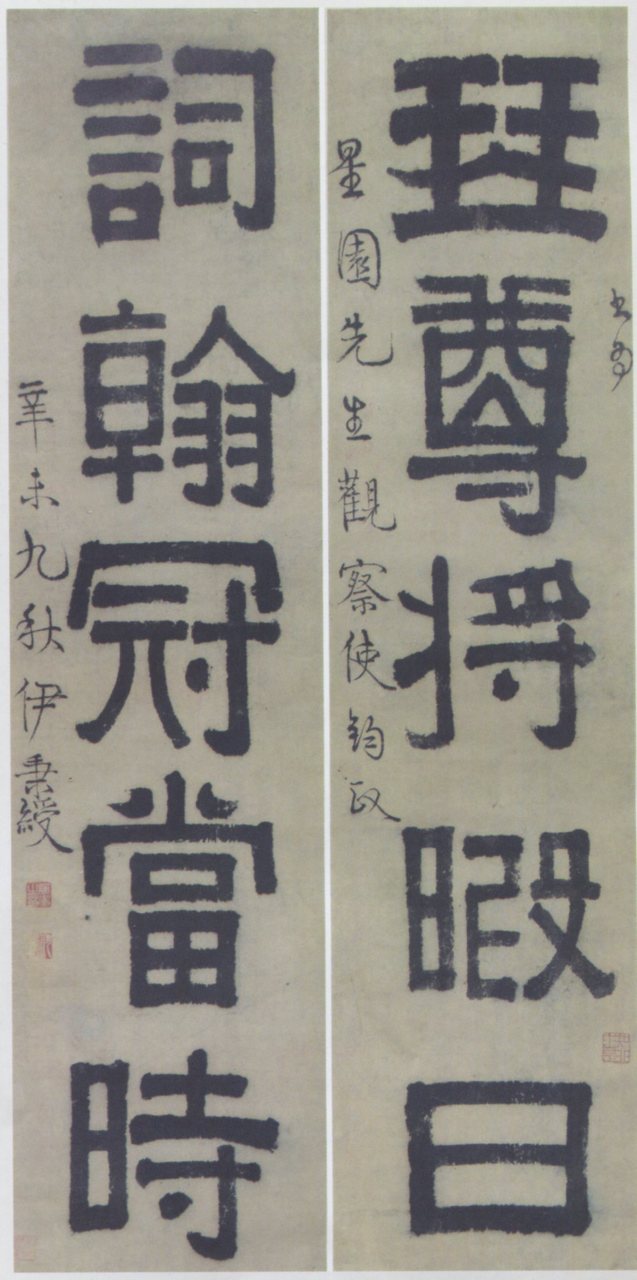 珡尊将暇日
書為
星園先生觀察使鈞政
詞翰冠當時
辛未九秋伊秉綬